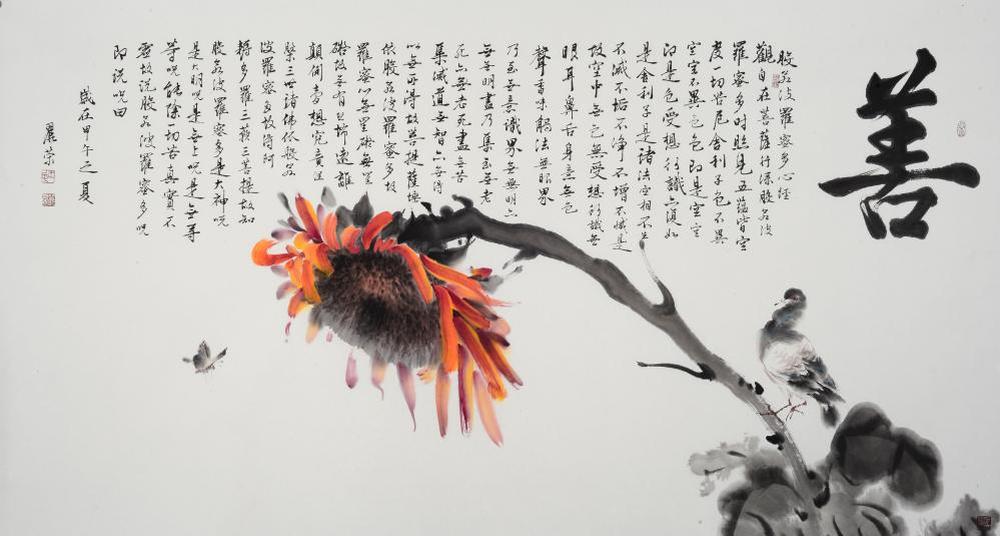 善
般若波羅蜜多心經
觀自在菩薩行深般若波
羅蜜多時照見五蘊皆空
度一切苦厄舍利子色不異
空空不異色色即是空空
即是色受想行識亦復如
是舍利子是諸法空相不生
不滅不垢不淨不增不減是
故空中無色無受想行識無
眼耳鼻舌身意無色
聲香味觸法無眼界
乃至無意識界無無明亦
無無明盡乃至無老
死亦無老死盡無苦
集滅道無智亦無得
以無所得故菩提薩埵
依般若波羅蜜多故
羅蜜心無罣礙無罣
礙故無有恐怖遠離
顛倒夢想究竟涅
槃三世諸佛依般若
波羅蜜多故得阿
耨多羅三藐三菩提故知
般若波羅蜜多是大神咒
是大明咒是無上咒是無等
等咒能除一切苦真實不
虛故說般若波羅蜜多咒
即說咒曰
歲在甲午之夏
麗榮